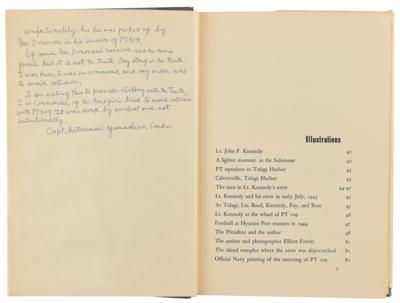 Unfortunately, his lie was picked up by
Mr. Donovan in his version of PT 109.
Of course Mr. Donovan's version reaches more
people, but it is not the truth. My story is the truth.
I was there, I was in command, and my order was
to avoid collision.
I am writing this to provide History with the Truth.
I, as Commander of the Amagiri tried to avoid collision
with PT 109. It was done by accident and not
intentionally.
Capt. Katsumori Yamashiro, Comdr.
Illustrations
Lt. John F. Kennedy 41
A lighter moment in the Solomons 42
PT squadron in Tulagi Harbor 43
Calvertville, Tulagi Harbor 43
The men in Lt. Kennedy's crew 44-45
Lt. Kennedy and his crew in early July, 1943 45
At Tulagi, Lts. Reed, Kennedy, Fay, and Ross 46
Lt. Kennedy at the wheel of PT 109 46
Football at Hyannis Port reunion in 1944 47
The President and the author 48
The author and photographer Elliott Erwitt 81
The island complex where the crew was shipwrecked 81
Official Navy painting of the ramming of PT 109 82